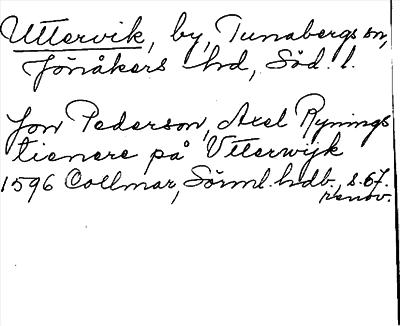 Uttervik, by, Tunabergs sn,
Jönåkers hd, Söd. l.
Jon Pederson, Axel Rynings
tienere på Vtterwijk
1596 Collmar, Sörml. hdb., s. 67.
renov.